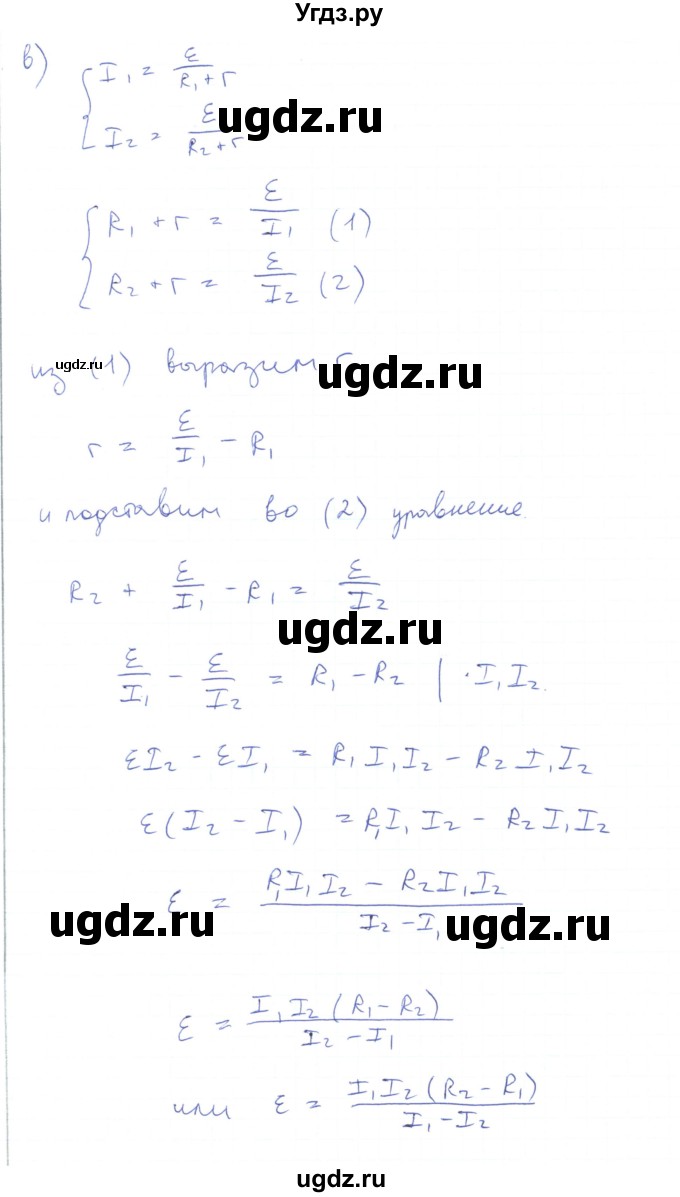 Угдз.ру
в) { I₁ = ε/(R₁ + r)
ugdz.ru
I₂ = ε/(R₂ + r)
{ R₁ + r = ε/I₁ (1)
R₂ + r = ε/I₂ (2)
ugdz.ru
из (1) выразим r
ugdz.ru
r = ε/I₁ - R₁
и подставим во (2) уравнение.
R₂ + ε/I₁ - R₁ = ε/I₂
ugdz.ru
ε/I₁ - ε/I₂ = R₁ - R₂ | · I₁ I₂.
εI₂ - εI₁ = R₁ I₁ I₂ - R₂ I₁ I₂
ε(I₂ - I₁) = R₁I₁ I₂ - R₂ I₁ I₂
ε = (R₁I₁ I₂ - R₂ I₁ I₂)/(I₂ - I₁)
ugdz.ru
ugdz.ru
ε = I₁ I₂ (R₁ - R₂)/(I₂ - I₁)
или ε = I₁ I₂ (R₂ - R₁)/(I₁ - I₂)
ugdz.ru